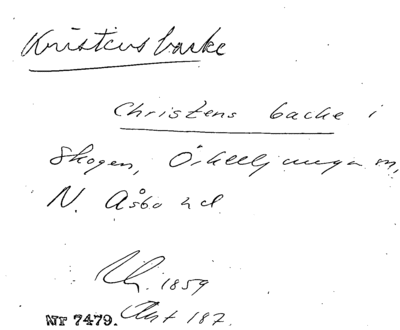 Kristens backe
Christens backe i
Skogen, Örkelljunga sn,
N. Åsbo hd
1859
NF 7479. 187.